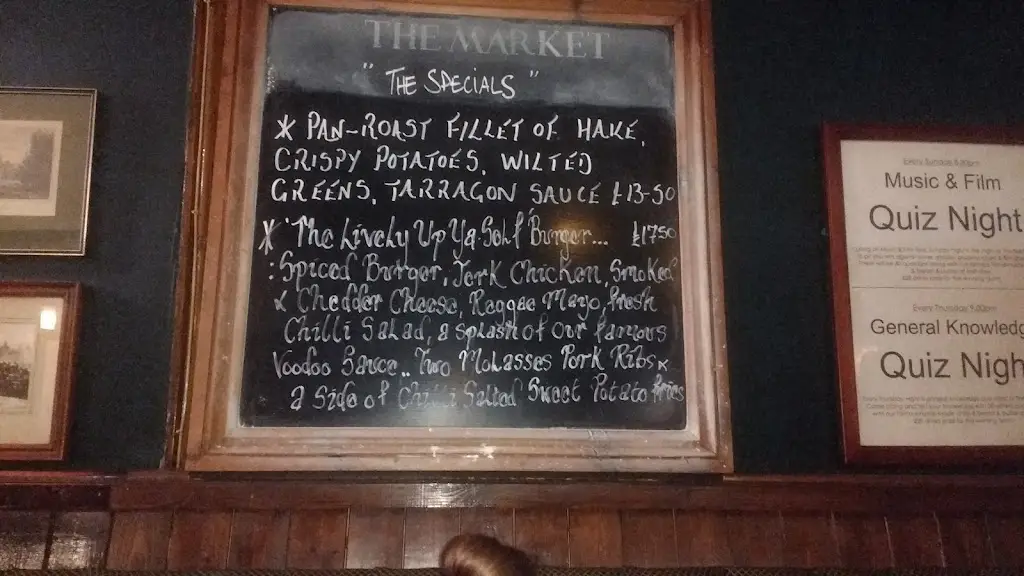 THE MARKET
"THE SPECIALS"
* PAN-ROAST FILLET OF HAKE,
CRISPY POTATOES, WILTED
GREENS, TARRAGON SAUCE £13-50
* The Lively Up Ya Self Burger... £1750
: Spiced Burger, Jerk Chicken, Smoked
& Chedder Cheese, Reggae Mayo, fresh
Chilli Salad, a splash of our famous
Voodoo Sauce.. Two Molasses Pork Ribs &
a side of Chilli Salted Sweet Potato fries
Every Sunday 8.00pm
Music & Film
Quiz Night
Every Thursday 8.00pm
General Knowledg
Quiz Nigh